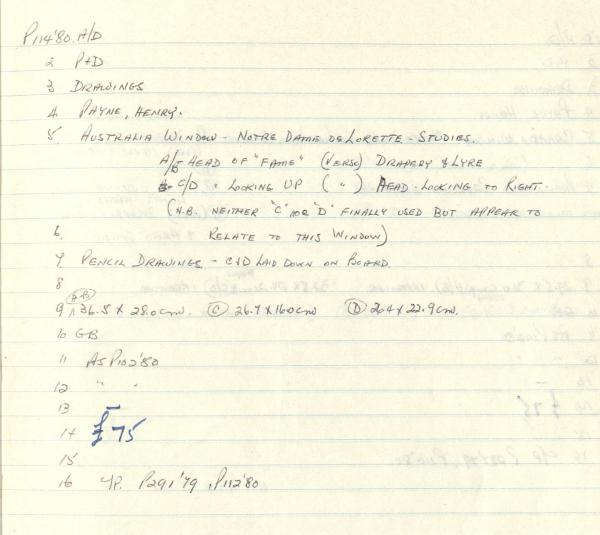 P114'80. A/D
2 P+D
3 DRAWINGS
4. PAYNE, HENRY.
5. AUSTRALIA WINDOW - NOTRE DAME DE LORETTE - STUDIES.
A/B HEAD OF "FAME" (VERSO) DRAPERY & LYRE
C/D " LOOKING UP ( " ) HEAD - LOOKING TO RIGHT.
(N.B. NEITHER "C" OR "D" FINALLY USED BUT APPEAR TO
6. RELATE TO THIS WINDOW)
7. PENCIL DRAWINGS - C+D LAID DOWN ON BOARD.
8
A+B
9 36.5 X 28.0cm. C 26.7 X 16.0cm D 20.4 X 22.9cm.
10 GB
11 AS P102'80
12 " "
13 –
14 £75
15
16 P291'79, P112'80